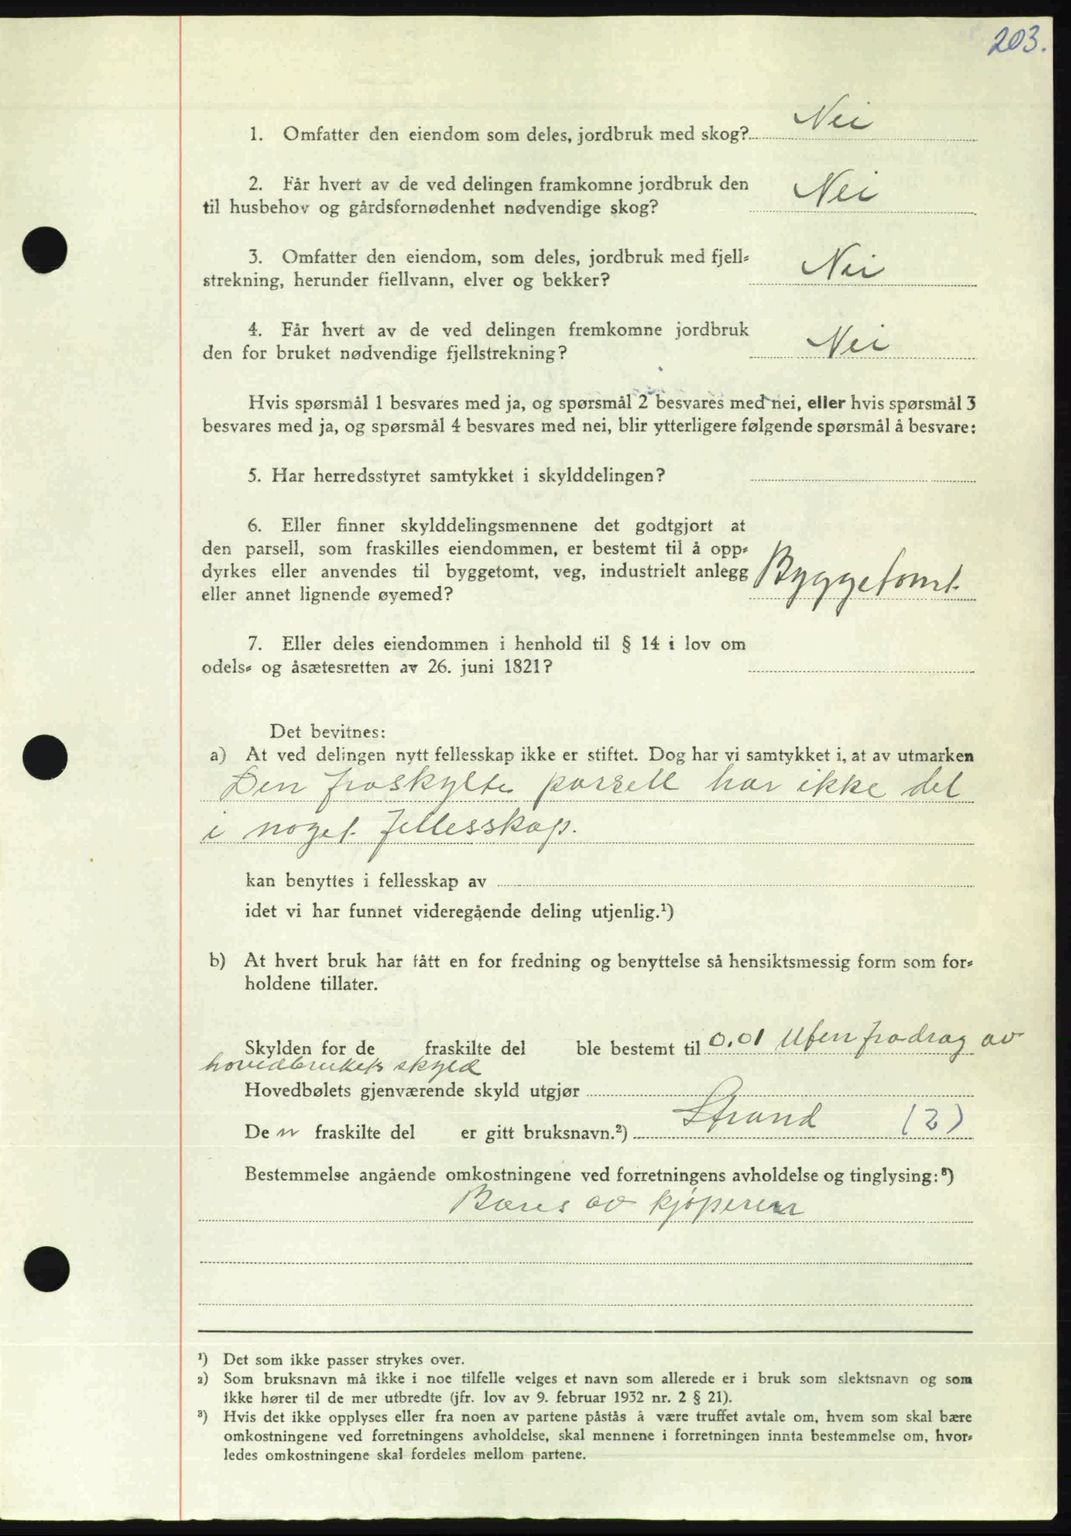 203.
1. Omfatter den eiendom som deles, jordbruk med skog? Nei
2. Får hvert av de ved delingen framkomne jordbruk den
til husbehov og gårdsfornødenhet nødvendige skog? Nei
3. Omfatter den eiendom, som deles, jordbruk med fjell-
strekning, herunder fiellvann, elver og bekker? Nei
4. Får hvert av de ved delingen fremkomne jordbruk
den for bruket nødvendige fjellstrekning? Nei
Hvis spørsmål 1 besvares med ja, og spørsmål 2 besvares med nei, eller hvis spørsmål 3
besvares med ja, og spørsmål 4 besvares med nei, blir ytterligere følgende spørsmål å besvare:
5. Har herredsstyret samtykket i skylddelingen?
6. Eller finner skylddelingsmennene det godtgjort at
den parsell, som fraskilles eiendommen, er bestemt til å opp-
dyrkes eller anvendes til byggetomt, veg, industrielt anlegg
eller annet lignende øyemed? Byggetomt
7. Eller deles eiendommen i henhold til § 14 i lov om
odels- og åsætesretten av 26. juni 1821?
Det bevitnes:
a) At ved delingen nytt fellesskap ikke er stiftet. Dog har vi samtykket i, at av utmarken
Den fraskylte parsell har ikke del
i noget fellesskap.
kan benyttes i fellesskap av
idet vi har funnet videregående deling utjenlig.¹)
b) At hvert bruk har fått en for fredning og benyttelse så hensiktsmessig form som for-
holdene tillater.
Skylden for de fraskilte del ble bestemt til 0,01 Uten fradrag av
hovedbrukets skyld
Hovedbølets gjenværende skyld utgjør
De n fraskilte del er gitt bruksnavn.²) Strand (2)
Bestemmelse angående omkostningene ved forretningens avholdelse og tinglysing:³)
Bæres av kjøperen
¹) Det som ikke passer strykes over.
²) Som bruksnavn må ikke i noe tilfelle velges et navn som allerede er i bruk som slektsnavn og som
ikke hører til de mer utbredte (jfr. lov av 9. februar 1932 nr. 2 § 21).
³) Hvis det ikke opplyses eller fra noen av partene påstås å være truffet avtale om, hvem som skal bære
omkostningene ved forretningens avholdelse, skal mennene i forretningen innta bestemmelse om, hvor-
ledes omkostningene skal fordeles mellom partene.